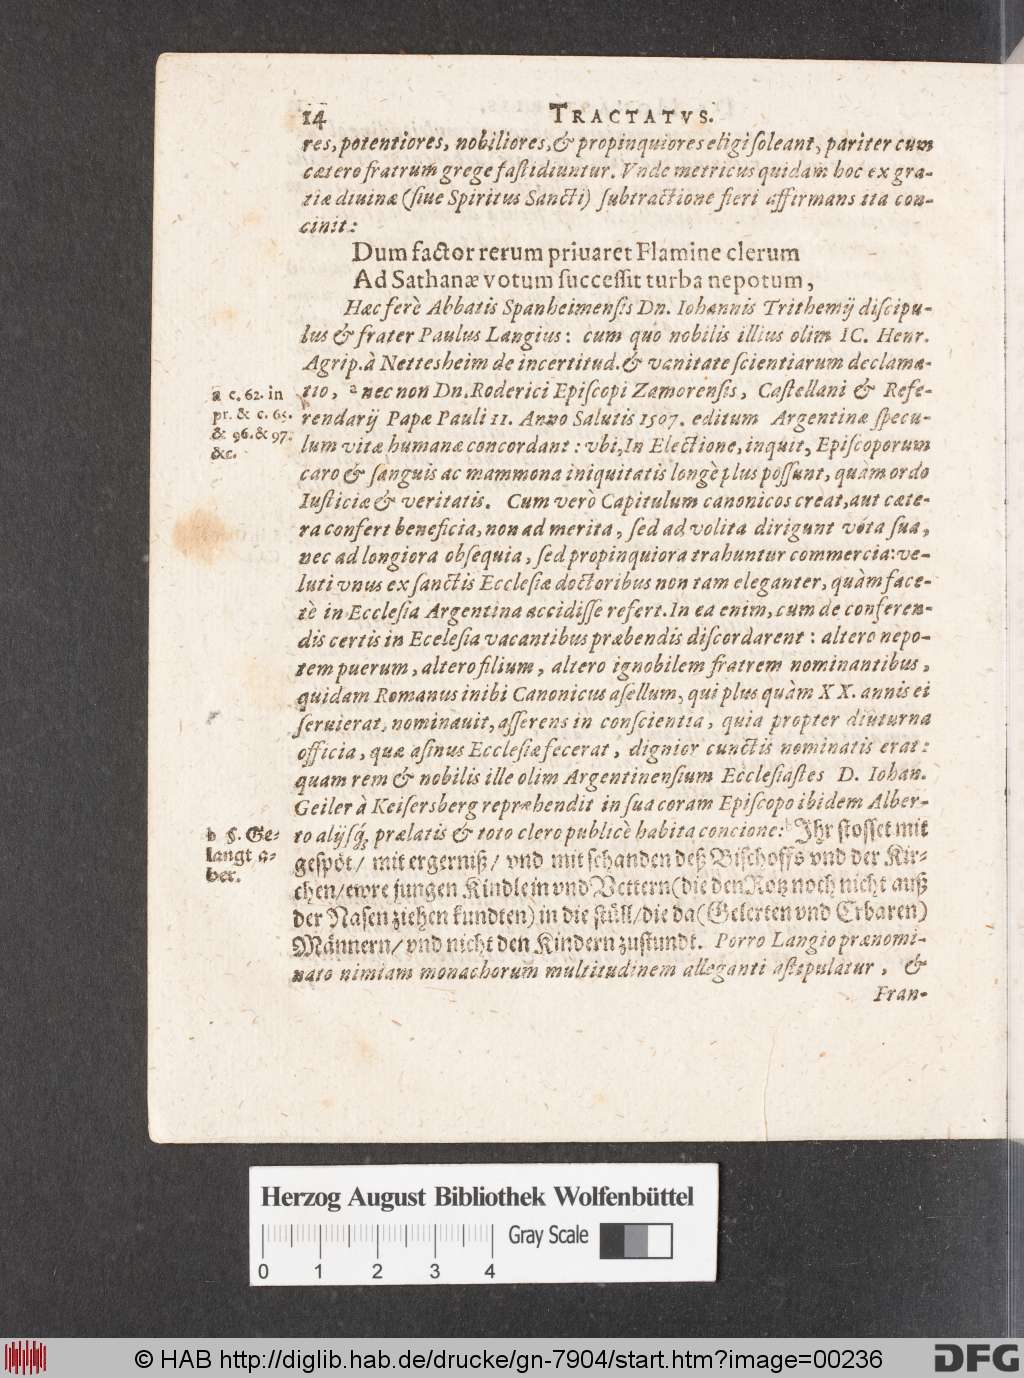 14 TRACTATVS.
res, potentiores, nobiliores, & propinquiores eligi soleant, pariter cum
cætero fratrum grege fastidiuntur. Vnde metricus quidam hoc ex gra-
tiæ diuinæ (siue Spiritus Sancti) subtractione fieri affirmans ita con-
cinit:
Dum factor rerum priuaret Flamine clerum
Ad Sathanæ votum successit turba nepotum,
Hæc ferè Abbatis Spanheimensis Dn. Iohannis Trithemij discipu-
lus & frater Paulus Langius: cum quo nobilis illius olim IC. Henr.
Agrip. à Nettesheim de incertitud. & vanitate scientiarum declama-
a c. 62. in
pr. & c. 65.
& 96. & 97.
&c.
tio, a nec non Dn. Roderici Episcopi Zamorensis, Castellani & Refe-
rendarij Papæ Pauli 11. Anno Salutis 1507. editum Argentinæ specu-
lum vitæ humanæ concordant: vbi, In Electione, inquit, Episcoporum
caro & sanguis ac mammona iniquitatis longè plus possunt, quàm ordo
Iusticiæ & veritatis. Cum verò Capitulum canonicos creat, aut cæte-
ra confert beneficia, non ad merita, sed ad volita dirigunt vota sua,
nec ad longiora obsequia, sed propinquiora trahuntur commercia: ve-
luti vnus ex sanctis Ecclesiæ doctoribus non tam eleganter, quàm face-
tè in Ecclesia Argentina accidisse refert. In ea enim, cum de conferen-
dis certis in Ecclesia vacantibus præbendis discordarent: altero nepo-
tem puerum, altero filium, altero ignobilem fratrem nominantibus,
quidam Romanus inibi Canonicus asellum, qui plus quàm XX. annis ei
seruierat, nominauit, asserens in conscientia, quia propter diuturna
officia, quæ asinus Ecclesiæ fecerat, dignior cunctis nominatis erat:
quam rem & nobilis ille olim Argentinensium Ecclesiastes D. Iohan.
Geiler à Keisersberg repræhendit in sua coram Episcopo ibidem Alber-
b §. Ge-
langt a-
ber.
to alijsq́; prælatis & toto clero publicè habita concione: b Ihr stosset mit
gespöt/ mit ergerniß/ vnd mit schanden deß Bischoffs vnd der Kir-
chen/ ewre jungen Kindlein vnd Vettern (die den Rotz noch nicht auß
der Nasen ziehen kundten) in die stüll/ die da (Gelerten vnd Erbaren)
Männern/ vnd nicht den Kindern zustundt. Porro Langio prænomi-
nato nimiam monachorum multitudinem alleganti astipulatur, &
Fran-
Herzog August Bibliothek Wolfenbüttel
Gray Scale
0 1 2 3 4
© HAB http://diglib.hab.de/drucke/gn-7904/start.htm?image=00236
DFG